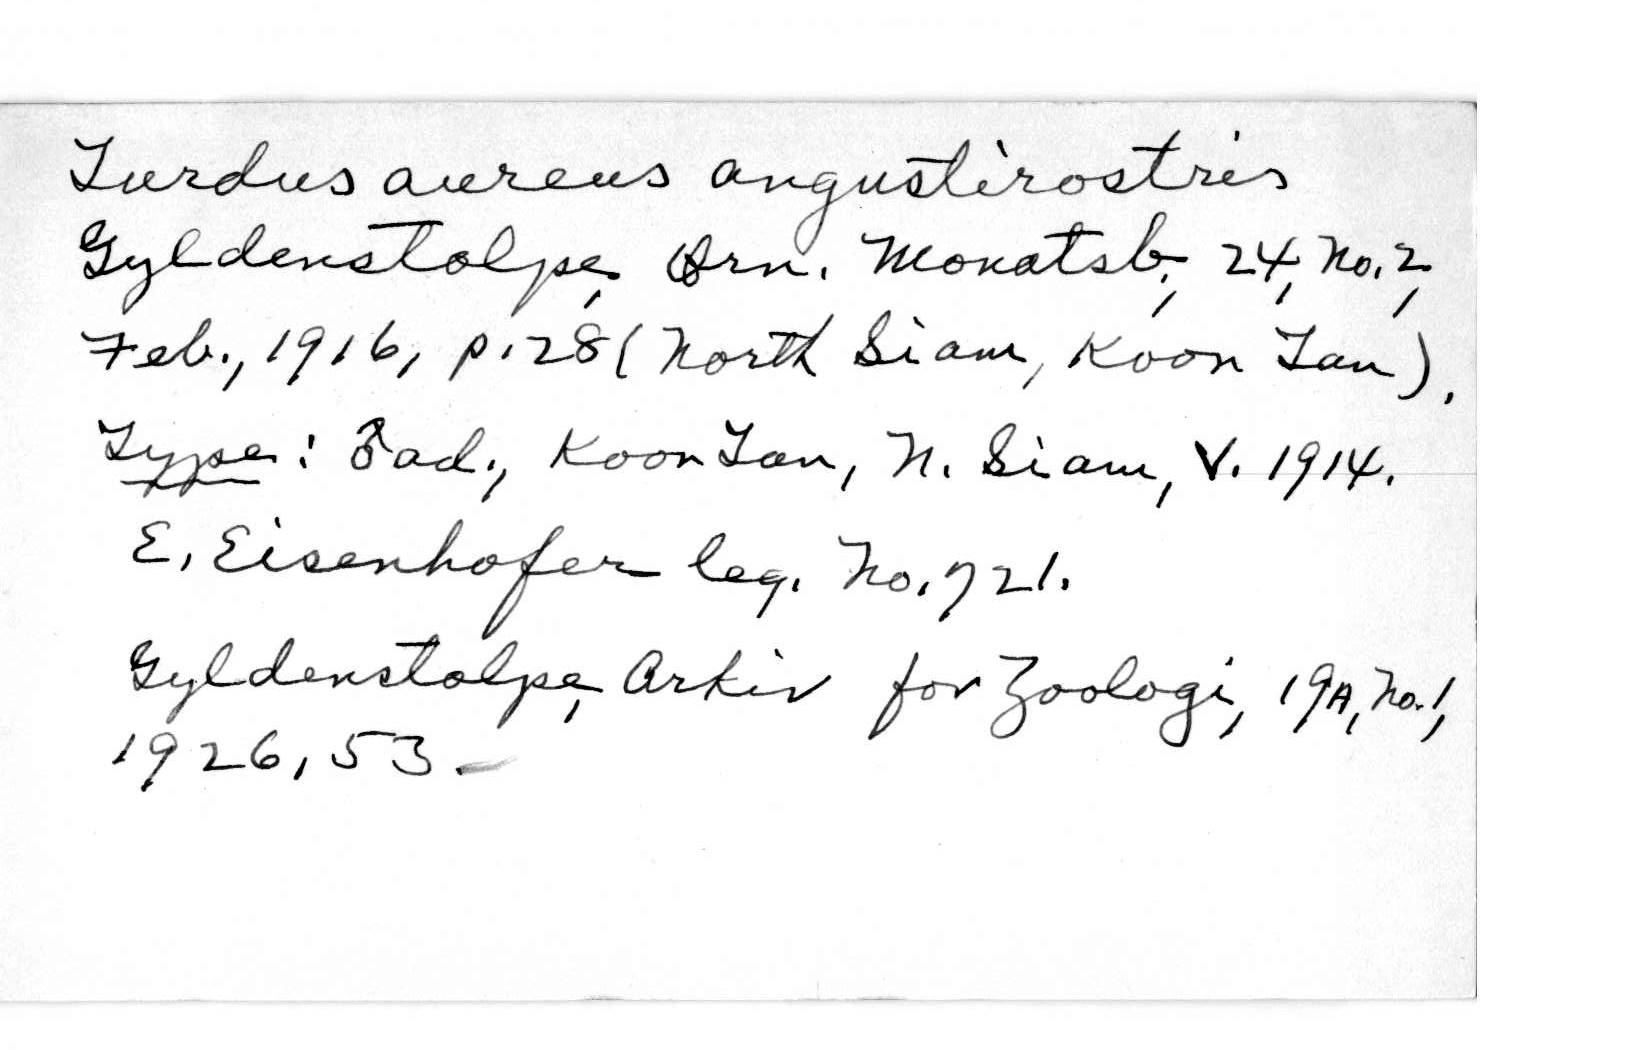 Turdus aureus angustirostris
Gyldenstolpe, Orn. Monatsb., 24, No. 2,
Feb., 1916, p. 28 (North Siam, Koon Tan).
Type: ♂ ad., Koon Tan, N. Siam, V. 1914.
E. Eisenhofer leg. No. 721.
Gyldenstolpe, Arkiv for Zoologi, 19A, No. 1,
1926, 53.